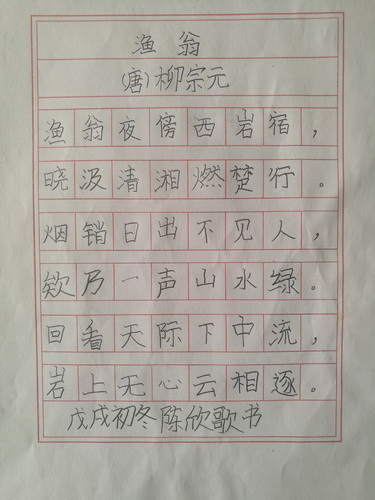 渔翁
(唐)柳宗元
渔翁夜傍西岩宿，
晓汲清湘燃楚行。
烟销日出不见人，
欸乃一声山水绿。
回看天际下中流，
岩上无心云相逐。
戊戌初冬陈欣歌书